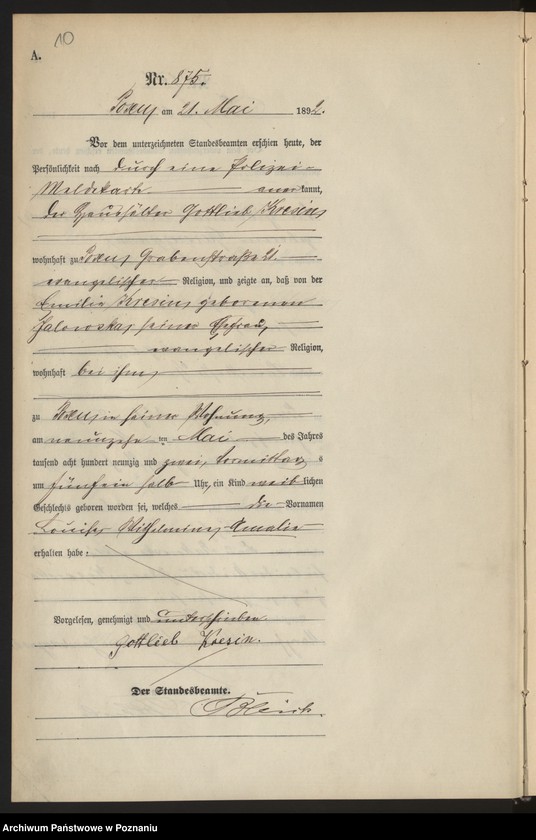 10
A.
Nr. 875.
Posen am 21. Mai 1892.
Vor dem unterzeichneten Standesbeamten erschien heute, der
Persönlichkeit nach durch eine Polizei-
Meldekarte anerkannt,
der Haushälter Gottlieb Kresin,
wohnhaft zu Posen, Grabenstraße 21
evangelischer Religion, und zeigte an, daß von der
Emilie Kresin, geborenen
seiner Ehefrau,
evangelischer Religion,
wohnhaft bei ihm,
zu Posen, in seiner Wohnung,
am neunzehnten Mai des Jahres
tausend acht hundert neunzig und zwei, Vormittags
um fünfeinhalb Uhr, ein Kind weiblichen
Geschlechts geboren worden sei, welches die Vornamen
Louise, Wilhelmine, Amalie
erhalten habe.
Vorgelesen, genehmigt und unterschrieben
Gottlieb Kresin.
Der Standesbeamte.
Archiwum Państwowe w Poznaniu